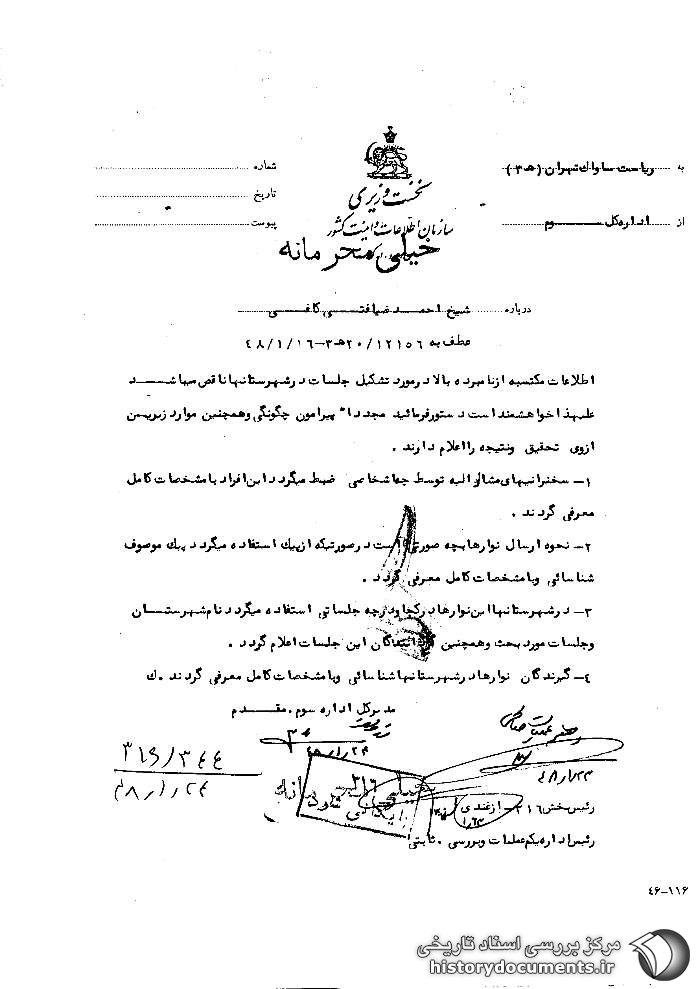 به ریاست ساواک تهران (ه‍ ۳)
از اداره‌کل سوم
شماره
تاریخ
پیوست
نخست وزیری
سازمان اطلاعات و امنیت کشور
خیلی محرمانه
درباره شیخ احمد ضیافتی کافی
عطف به ۲۰/۱۲۱۵۶ه‍ ۳-۴۸/۱/۱۶
اطلاعات مکتسبه از نامبرده بالا در مورد تشکیل جلسات در شهرستانها ناقص میباشد
علیهذا خواهشمند است دستور فرمائید مجددا" پیرامون چگونگی و همچنین موارد زیر بمن
ازوی تحقیق و نتیجه را اعلام دارند .
۱- سخنرانیهای مشارالیه توسط چه اشخاصی ضبط میگردد این افراد با مشخصات کامل
معرفی گردند .
۲- نحوه ارسال نوارها بچه صورتی است در صورتیکه از پیک استفاده میگردد پیک موصوف
شناسائی و با مشخصات کامل معرفی گردد .
۳- در شهرستانها این نوارها در کجا و در چه جلساتی استفاده میگردد نام شهرستان
و جلسات مورد بحث و همچنین گردانندگان این جلسات اعلام گردد .
۴- گیرندگان نوارها در شهرستانها شناسائی و با مشخصات کامل معرفی گردند . ک
مدیرکل اداره سوم . مقدم
۴۸/۱/۲۴
۳۱۶/۳۴۴
۴۸/۱/۲۴
۴۸/۱/۲۳
خیلی محرمانه
۳۱۶
بایگانی شود
رئیس بخش ۳۱۶- ازغندی
۱/۲۳
رئیس اداره یکم عملیات و بررسی . ثابتی
۴۶-۱۱۶
مرکز بررسی اسناد تاریخی
historydocuments.ir